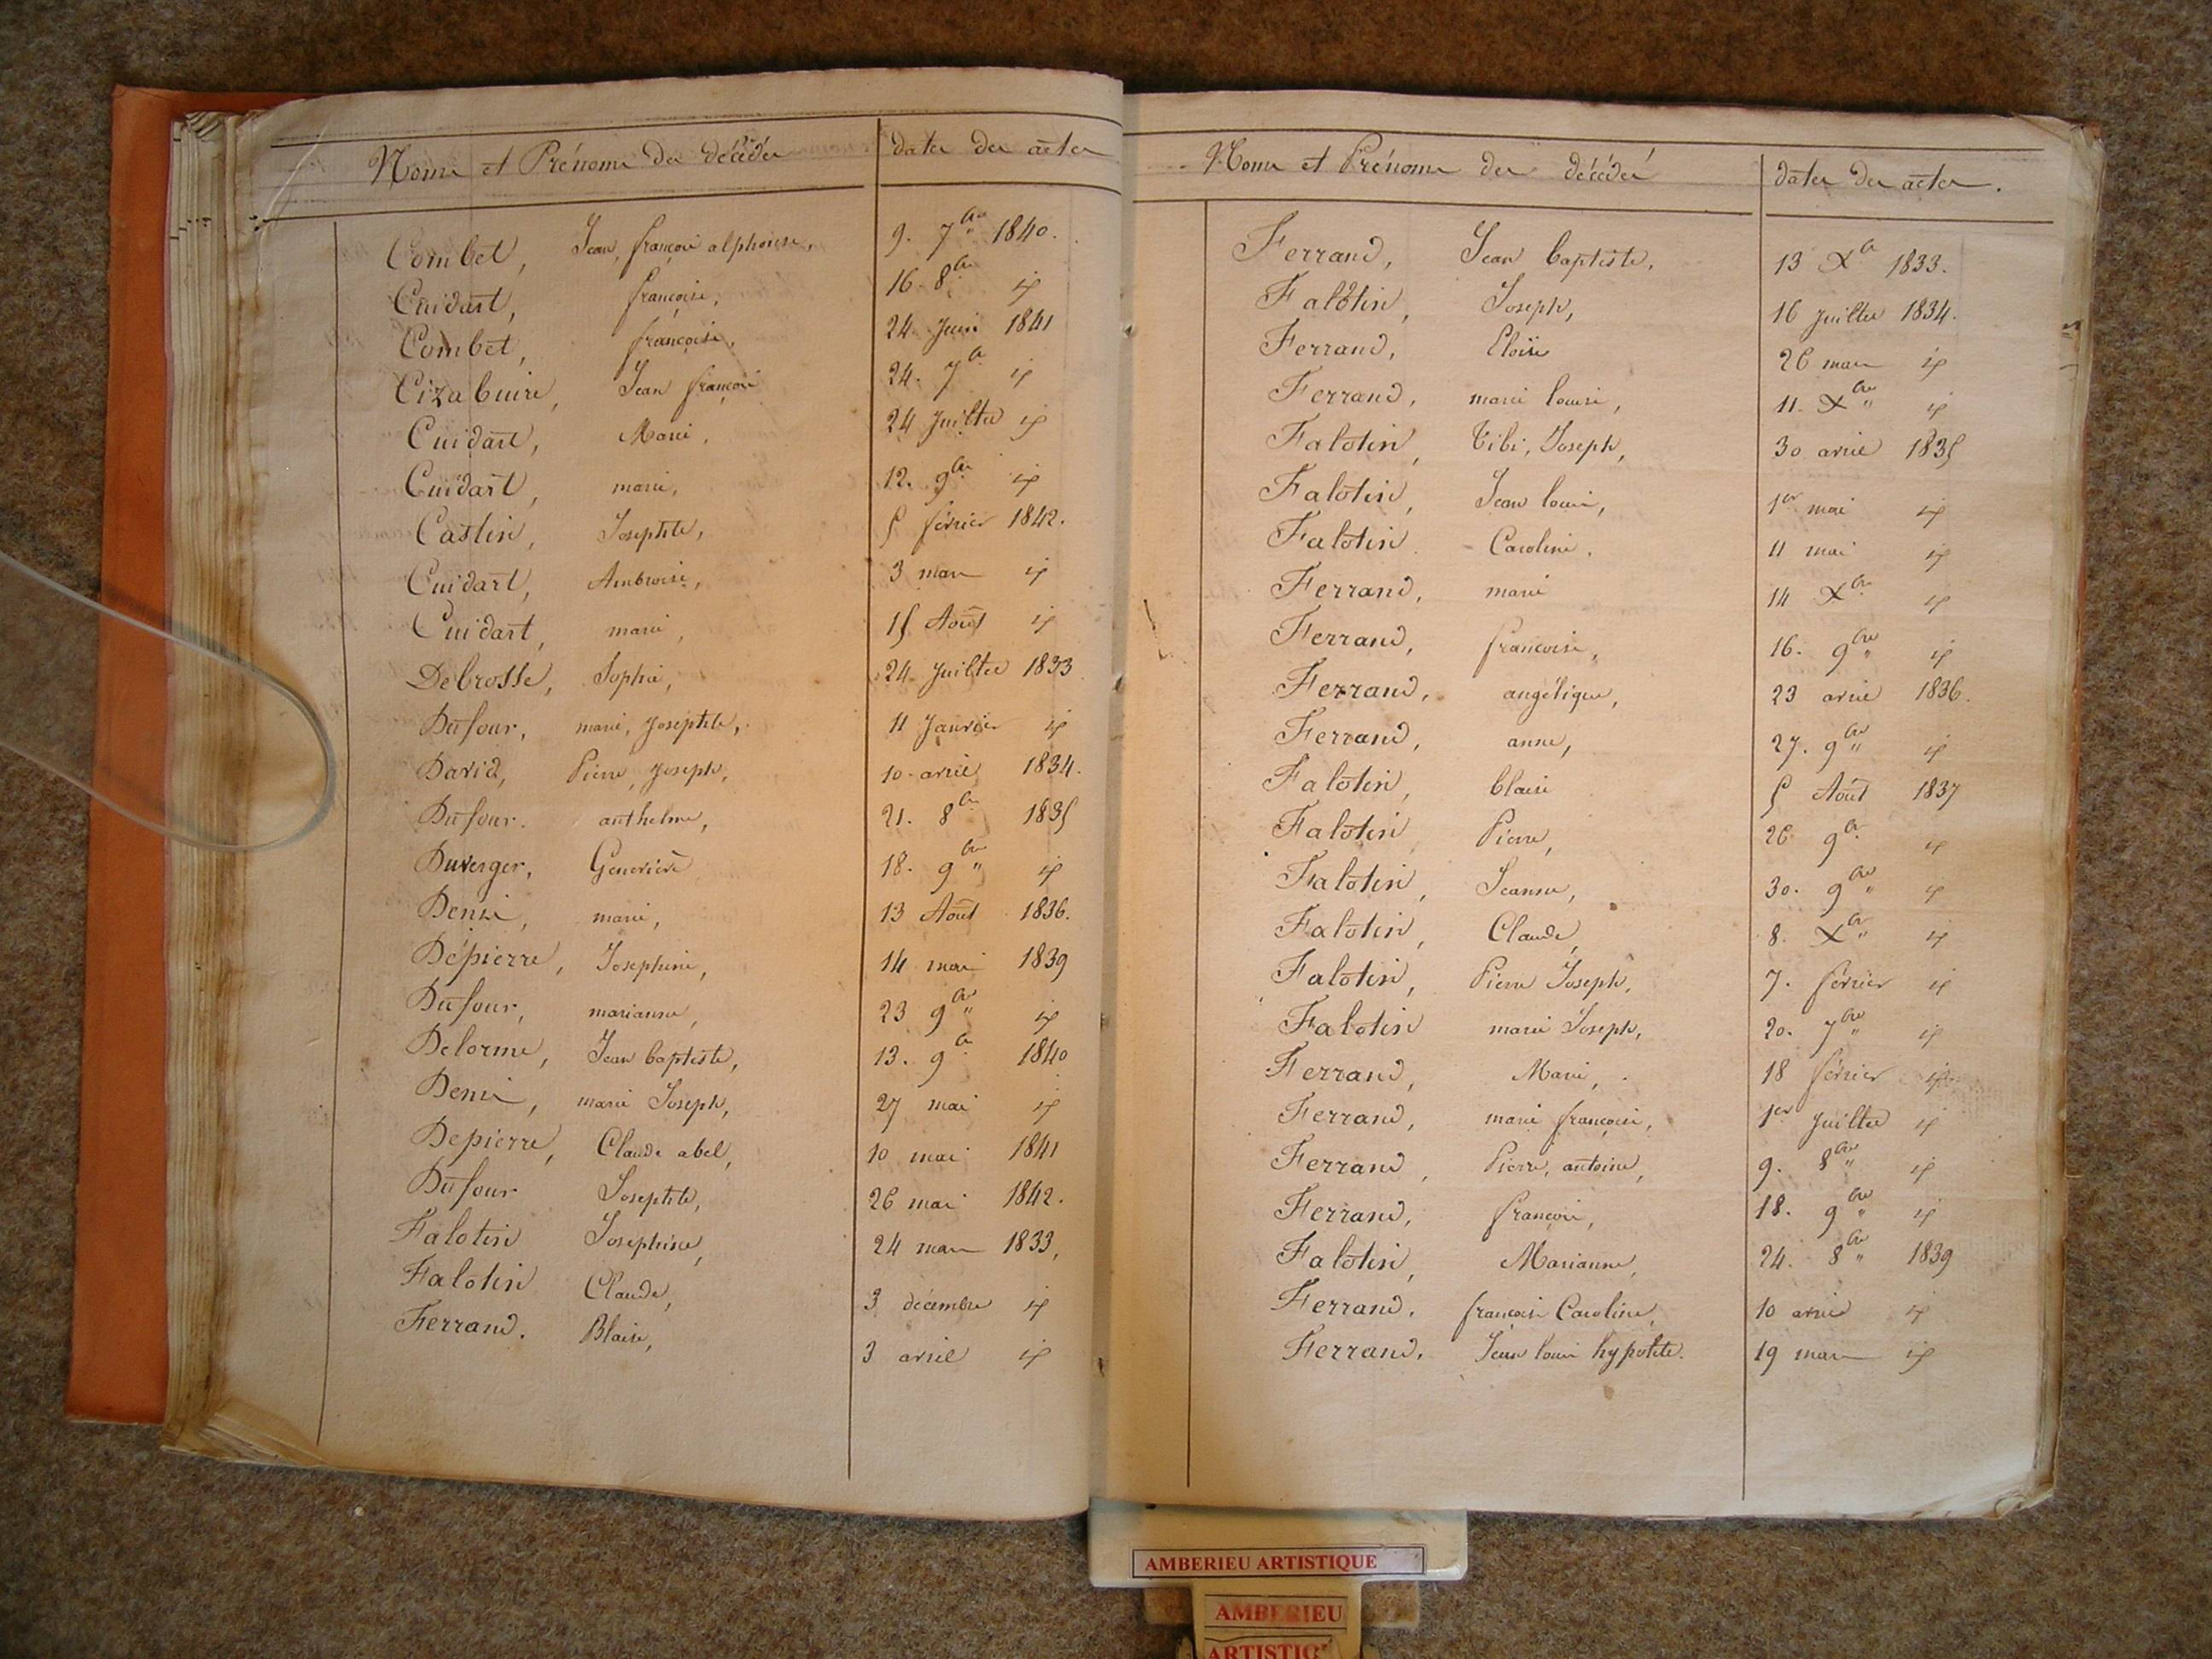 Noms et Prénoms des décédés dates des actes
Combet, Jean, françois alphonse, 9. 7bre 1840.
Cuidart, françoise, 16. 8bre id
Combet, françoise, 24 Juin 1841
Cizabuire, Jean françois 24. 7bre id
Cuidart, Marie, 24 Juillet id
Cuidart, marie, 12. 9bre id
Castin, Josephte, 5 février 1842.
Cuidart, Ambroise, 3 mars id
Cuidart, marie, 15 Août id
Debrosse, Sophie, 24 Juillet 1833
Dufour, marie, Josephte, 11 Janvier id
David, Pierre, Joseph, 10 avril 1834.
Dufour. anthelme, 21. 8bre 1835
Duverger, Geneviève 18. 9bre id
Denis, marie, 13 Août 1836.
Dépierre, Josephine, 14 mai 1839
Dufour, marianne, 23 9bre id
Delorme, Jean baptiste, 13. 9bre 1840
Denis, marie Joseph, 27 mai id
Depierre, Claude abel, 10 mai 1841
Dufour Josephte, 26 mai 1842.
Falotin Josephine, 24 mars 1833,
Falotin Claude, 3 décembre id
Ferrand. Blaise, 3 avril id
Noms et Prénoms des décédés dates des actes.
Ferrand, Jean baptiste, 13 Xbre 1833.
Falotin, Joseph, 16 Juillet 1834.
Ferrand, Eloïse 26 mars id
Ferrand, marie louise, 11. Xbre id
Falotin, Joseph, 30 avril 1835
Falotin, Jean louis, 1er mai id
Falotin. Caroline. 11 mai id
Ferrand, marie 14 Xbre id
Ferrand, françoise, 16. 9bre id
Ferrand, angélique, 23 avril 1836.
Ferrand, anne, 27. 9bre id
Falotin, blaise 5 Août 1837
Falotin Pierre, 26 9bre id
Falotin, Jeanne, 30. 9bre id
Falotin, Claude, 8. Xbre id
Falotin, Pierre Joseph, 7. février id
Falotin marie Joseph, 20. 7bre id
Ferrand, Marie, 18 février id
Ferrand, marie françoise, 1er Juillet id
Ferrand, Pierre, antoine, 9. 8bre id
Ferrand, françois, 18. 9bre id
Falotin, Marianne, 24. 8bre 1839
Ferrand. françoise Caroline, 10 avril id
Ferrand. Jean louis hypolite. 19 mars id
AMBERIEU ARTISTIQUE
AMBERIEU